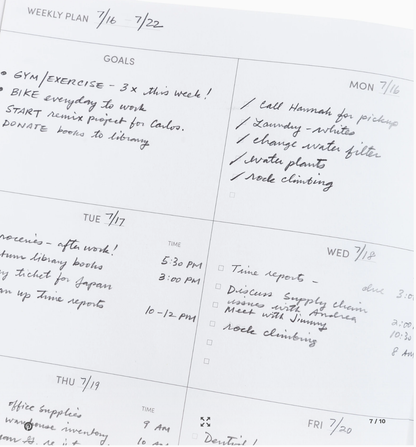 WEEKLY PLAN 7/16 - 7/22
GOALS
• GYM/EXERCISE - 3x this week!
• BIKE everyday to work
START remix project for Carlos.
DONATE books to library
MON 7/16
/ Call Hannah for pickup
/ Laundry - whites
/ change water filter
/ water plants
/ rock climbing
TUE 7/17
TIME
roceries - after work! 5:30 PM
turn library books 3:00 PM
y ticket for Japan
an up Time reports 10-12 PM
WED 7/18
Time reports - due 3:0
Discuss Supply chain
issues with Andrea 2:00
Meet with Jimmy 10:30
rock climbing 8 AM
THU 7/19
TIME
office Supplies 9 AM
warehouse inventory 10 AM
FRI 7/20
7/10
Dentist!